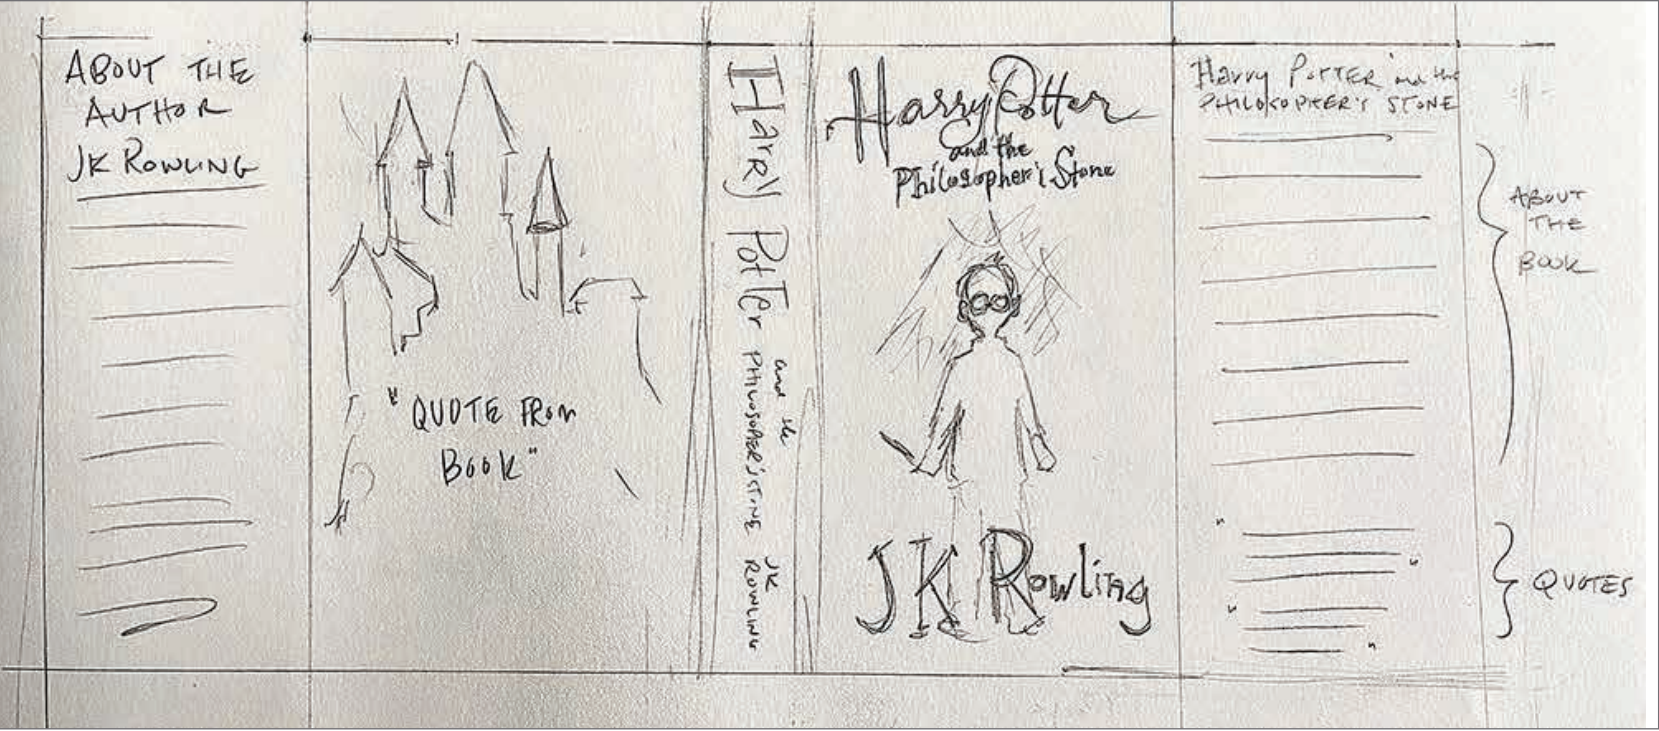 ABOUT THE
AUTHOR
JK ROWLING
"QUOTE FROM
BOOK"
HARRY POTTER and the
PHILOSOPHER'S STONE
JK
ROWLING
Harry Potter
and the
Philosopher's Stone
JK Rowling
Harry POTTER and the
PHILOSOPHER'S STONE
ABOUT
THE
BOOK
QUOTES